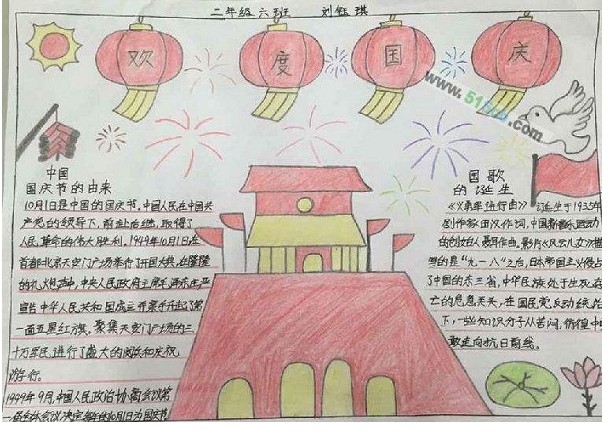 二年级六班 刘钰琪
欢度国庆
www.51
.com
中国
国庆节的由来
10月1日是中国的国庆节,中国人民在中国共
产党的领导下,前赴后继,取得了
人民革命的伟大胜利,1949年10月1日,在
首都北京天安门广场举行了开国大典,在隆隆
的礼炮声中,中央人民政府主席毛泽东庄严
宣告中华人民共和国成立并亲手升起了第
一面五星红旗,聚集天安门广场的三
十万军民,进行了盛大的阅兵和庆祝
游行。
1949年9月,中国人民政治协商会议第
一届全体会议决定每年的10月1日为国庆节
国歌
的诞生
《义勇军进行曲》诞生于1935年
创作,由田汉作词,中国新音乐运动
的创始人聂耳作曲,影片《风云儿女》
的是"九一八"之后,日本帝国主义侵占
了中国的东三省,中华民族处于生死存
亡的危急关头,在国民党反动统治
下,一些知识分子从苦闷,彷徨中
敢走向抗日前线。